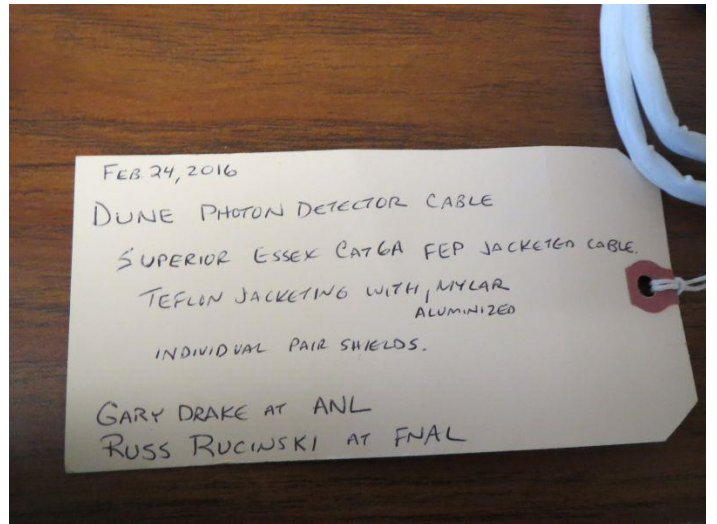 FEB. 24, 2016
DUNE PHOTON DETECTOR CABLE
SUPERIOR ESSEX CAT6A FEP JACKETED CABLE.
TEFLON JACKETING WITH, MYLAR
ALUMINIZED
INDIVIDUAL PAIR SHIELDS.
GARY DRAKE AT ANL
RUSS RUCINSKI AT FNAL